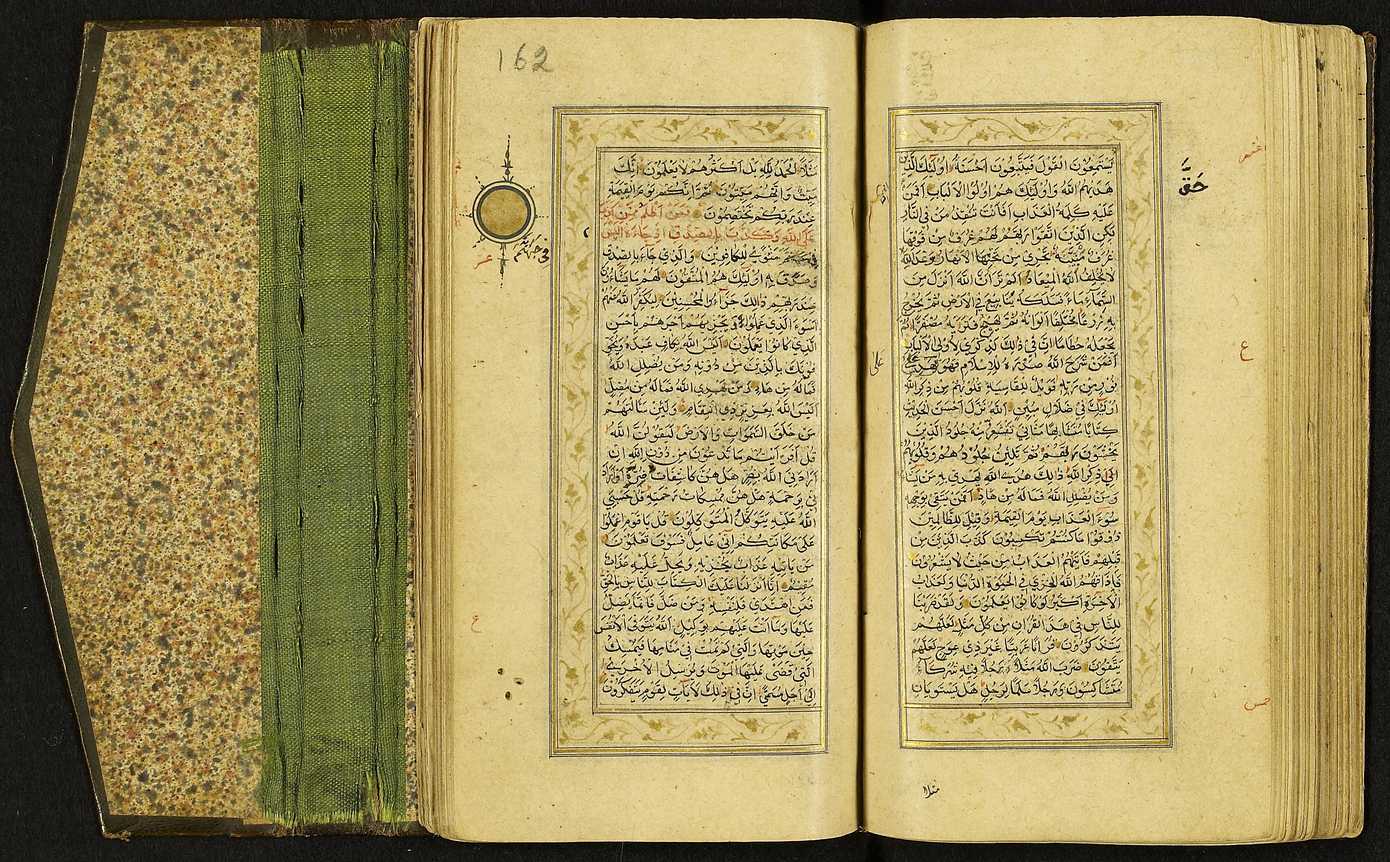 يَسْتَمِعُونَ الْقَوْلَ فَيَتَّبِعُونَ أَحْسَنَهُ أُولَئِكَ الَّذِينَ
هَدَاهُمُ اللَّهُ وَأُولَئِكَ هُمْ أُولُوا الْأَلْبَابِ أَفَمَنْ
حَقَّ
عَلَيْهِ كَلِمَةُ الْعَذَابِ أَفَأَنْتَ تُنْقِذُ مَنْ فِي النَّارِ
لَكِنِ الَّذِينَ اتَّقَوْا رَبَّهُمْ لَهُمْ غُرَفٌ مِنْ فَوْقِهَا
غُرَفٌ مَبْنِيَّةٌ تَجْرِي مِنْ تَحْتِهَا الْأَنْهَارُ وَعْدَ اللَّهِ
لَا يُخْلِفُ اللَّهُ الْمِيعَادَ أَلَمْ تَرَ أَنَّ اللَّهَ أَنْزَلَ مِنَ
السَّمَاءِ مَاءً فَسَلَكَهُ يَنَابِيعَ فِي الْأَرْضِ ثُمَّ يُخْرِجُ
بِهِ زَرْعًا مُخْتَلِفًا أَلْوَانُهُ ثُمَّ يَهِيجُ فَتَرَاهُ مُصْفَرًّا ثُمَّ
يَجْعَلُهُ حُطَامًا إِنَّ فِي ذَلِكَ لَذِكْرَى لِأُولِي الْأَلْبَابِ
أَفَمَنْ شَرَحَ اللَّهُ صَدْرَهُ لِلْإِسْلَامِ فَهُوَ عَلَى
نُورٍ مِنْ رَبِّهِ فَوَيْلٌ لِلْقَاسِيَةِ قُلُوبُهُمْ مِنْ ذِكْرِ اللَّهِ
أُولَئِكَ فِي ضَلَالٍ مُبِينٍ اللَّهُ نَزَّلَ أَحْسَنَ الْحَدِيثِ
كِتَابًا مُتَشَابِهًا مَثَانِيَ تَقْشَعِرُّ مِنْهُ جُلُودُ الَّذِينَ
يَخْشَوْنَ رَبَّهُمْ ثُمَّ تَلِينُ جُلُودُهُمْ وَقُلُوبُهُمْ
إِلَى ذِكْرِ اللَّهِ ذَلِكَ هُدَى اللَّهِ يَهْدِي بِهِ مَنْ يَشَاءُ
وَمَنْ يُضْلِلِ اللَّهُ فَمَا لَهُ مِنْ هَادٍ أَفَمَنْ يَتَّقِي بِوَجْهِهِ
سُوءَ الْعَذَابِ يَوْمَ الْقِيمَةِ وَقِيلَ لِلظَّالِمِينَ
ذُوقُوا مَا كُنْتُمْ تَكْسِبُونَ كَذَّبَ الَّذِينَ مِنْ
قَبْلِهِمْ فَأَتَاهُمُ الْعَذَابُ مِنْ حَيْثُ لَا يَشْعُرُونَ
فَأَذَاقَهُمُ اللَّهُ الْخِزْيَ فِي الْحَيٰوةِ الدُّنْيَا وَلَعَذَابُ
الْآخِرَةِ أَكْبَرُ لَوْ كَانُوا يَعْلَمُونَ وَلَقَدْ ضَرَبْنَا
لِلنَّاسِ فِي هَذَا الْقُرْآنِ مِنْ كُلِّ مَثَلٍ لَعَلَّهُمْ
يَتَذَكَّرُونَ قُرْآنًا عَرَبِيًّا غَيْرَ ذِي عِوَجٍ لَعَلَّهُمْ
يَتَّقُونَ ضَرَبَ اللَّهُ مَثَلًا رَجُلًا فِيهِ شُرَكَاءُ
مُتَشَاكِسُونَ وَرَجُلًا سَلَمًا لِرَجُلٍ هَلْ يَسْتَوِيَانِ
مثلا
162
مَثَلًا الْحَمْدُ لِلَّهِ بَلْ أَكْثَرُهُمْ لَا يَعْلَمُونَ إِنَّكَ
مَيِّتٌ وَإِنَّهُمْ مَيِّتُونَ ثُمَّ إِنَّكُمْ يَوْمَ الْقِيمَةِ
عِنْدَ رَبِّكُمْ تَخْتَصِمُونَ فَمَنْ أَظْلَمُ مِمَّنْ كَذَبَ
عَلَى اللَّهِ وَكَذَّبَ بِالصِّدْقِ إِذْ جَاءَهُ أَلَيْسَ
فِي جَهَنَّمَ مَثْوًى لِلْكَافِرِينَ وَالَّذِي جَاءَ بِالصِّدْقِ
وَصَدَّقَ بِهِ أُولَئِكَ هُمُ الْمُتَّقُونَ لَهُمْ مَا يَشَاءُونَ
عِنْدَ رَبِّهِمْ ذَلِكَ جَزَاءُ الْمُحْسِنِينَ لِيُكَفِّرَ اللَّهُ عَنْهُمْ
أَسْوَءَ الَّذِي عَمِلُوا وَيَجْزِيَهُمْ أَجْرَهُمْ بِأَحْسَنِ
الَّذِي كَانُوا يَعْمَلُونَ أَلَيْسَ اللَّهُ بِكَافٍ عَبْدَهُ
وَيُخَوِّفُونَكَ بِالَّذِينَ مِنْ دُونِهِ وَمَنْ يُضْلِلِ اللَّهُ
فَمَا لَهُ مِنْ هَادٍ وَمَنْ يَهْدِي اللَّهُ فَمَا لَهُ مِنْ مُضِلٍّ
أَلَيْسَ اللَّهُ بِعَزِيزٍ ذِي انْتِقَامٍ وَلَئِنْ سَأَلْتَهُمْ
مَنْ خَلَقَ السَّمٰوَاتِ وَالْأَرْضَ لَيَقُولُنَّ اللَّهُ
قُلْ أَفَرَأَيْتُمْ مَا تَدْعُونَ مِنْ دُونِ اللَّهِ إِنْ
أَرَادَنِيَ اللَّهُ بِضُرٍّ هَلْ هُنَّ كَاشِفَاتُ ضُرِّهِ أَوْ أَرَادَ
نِي بِرَحْمَةٍ هَلْ هُنَّ مُمْسِكَاتُ رَحْمَتِهِ قُلْ حَسْبِيَ
اللَّهُ عَلَيْهِ يَتَوَكَّلُ الْمُتَوَكِّلُونَ قُلْ يَا قَوْمِ اعْمَلُوا
عَلَى مَكَانَتِكُمْ إِنِّي عَامِلٌ فَسَوْفَ تَعْلَمُونَ
مَنْ يَأْتِيهِ عَذَابٌ يُخْزِيهِ وَيَحِلُّ عَلَيْهِ عَذَابٌ
مُقِيمٌ إِنَّا أَنْزَلْنَا عَلَيْكَ الْكِتَابَ لِلنَّاسِ بِالْحَقِّ
فَمَنِ اهْتَدَى فَلِنَفْسِهِ وَمَنْ ضَلَّ فَإِنَّمَا يَضِلُّ
عَلَيْهَا وَمَا أَنْتَ عَلَيْهِمْ بِوَكِيلٍ اللَّهُ يَتَوَفَّى الْأَنْفُسَ
حِينَ مَوْتِهَا وَالَّتِي لَمْ تَمُتْ فِي مَنَامِهَا فَيُمْسِكُ
الَّتِي قَضَى عَلَيْهَا الْمَوْتَ وَيُرْسِلُ الْأُخْرَى
إِلَى أَجَلٍ مُسَمًّى إِنَّ فِي ذَلِكَ لَآيَاتٍ لِقَوْمٍ يَتَفَكَّرُونَ